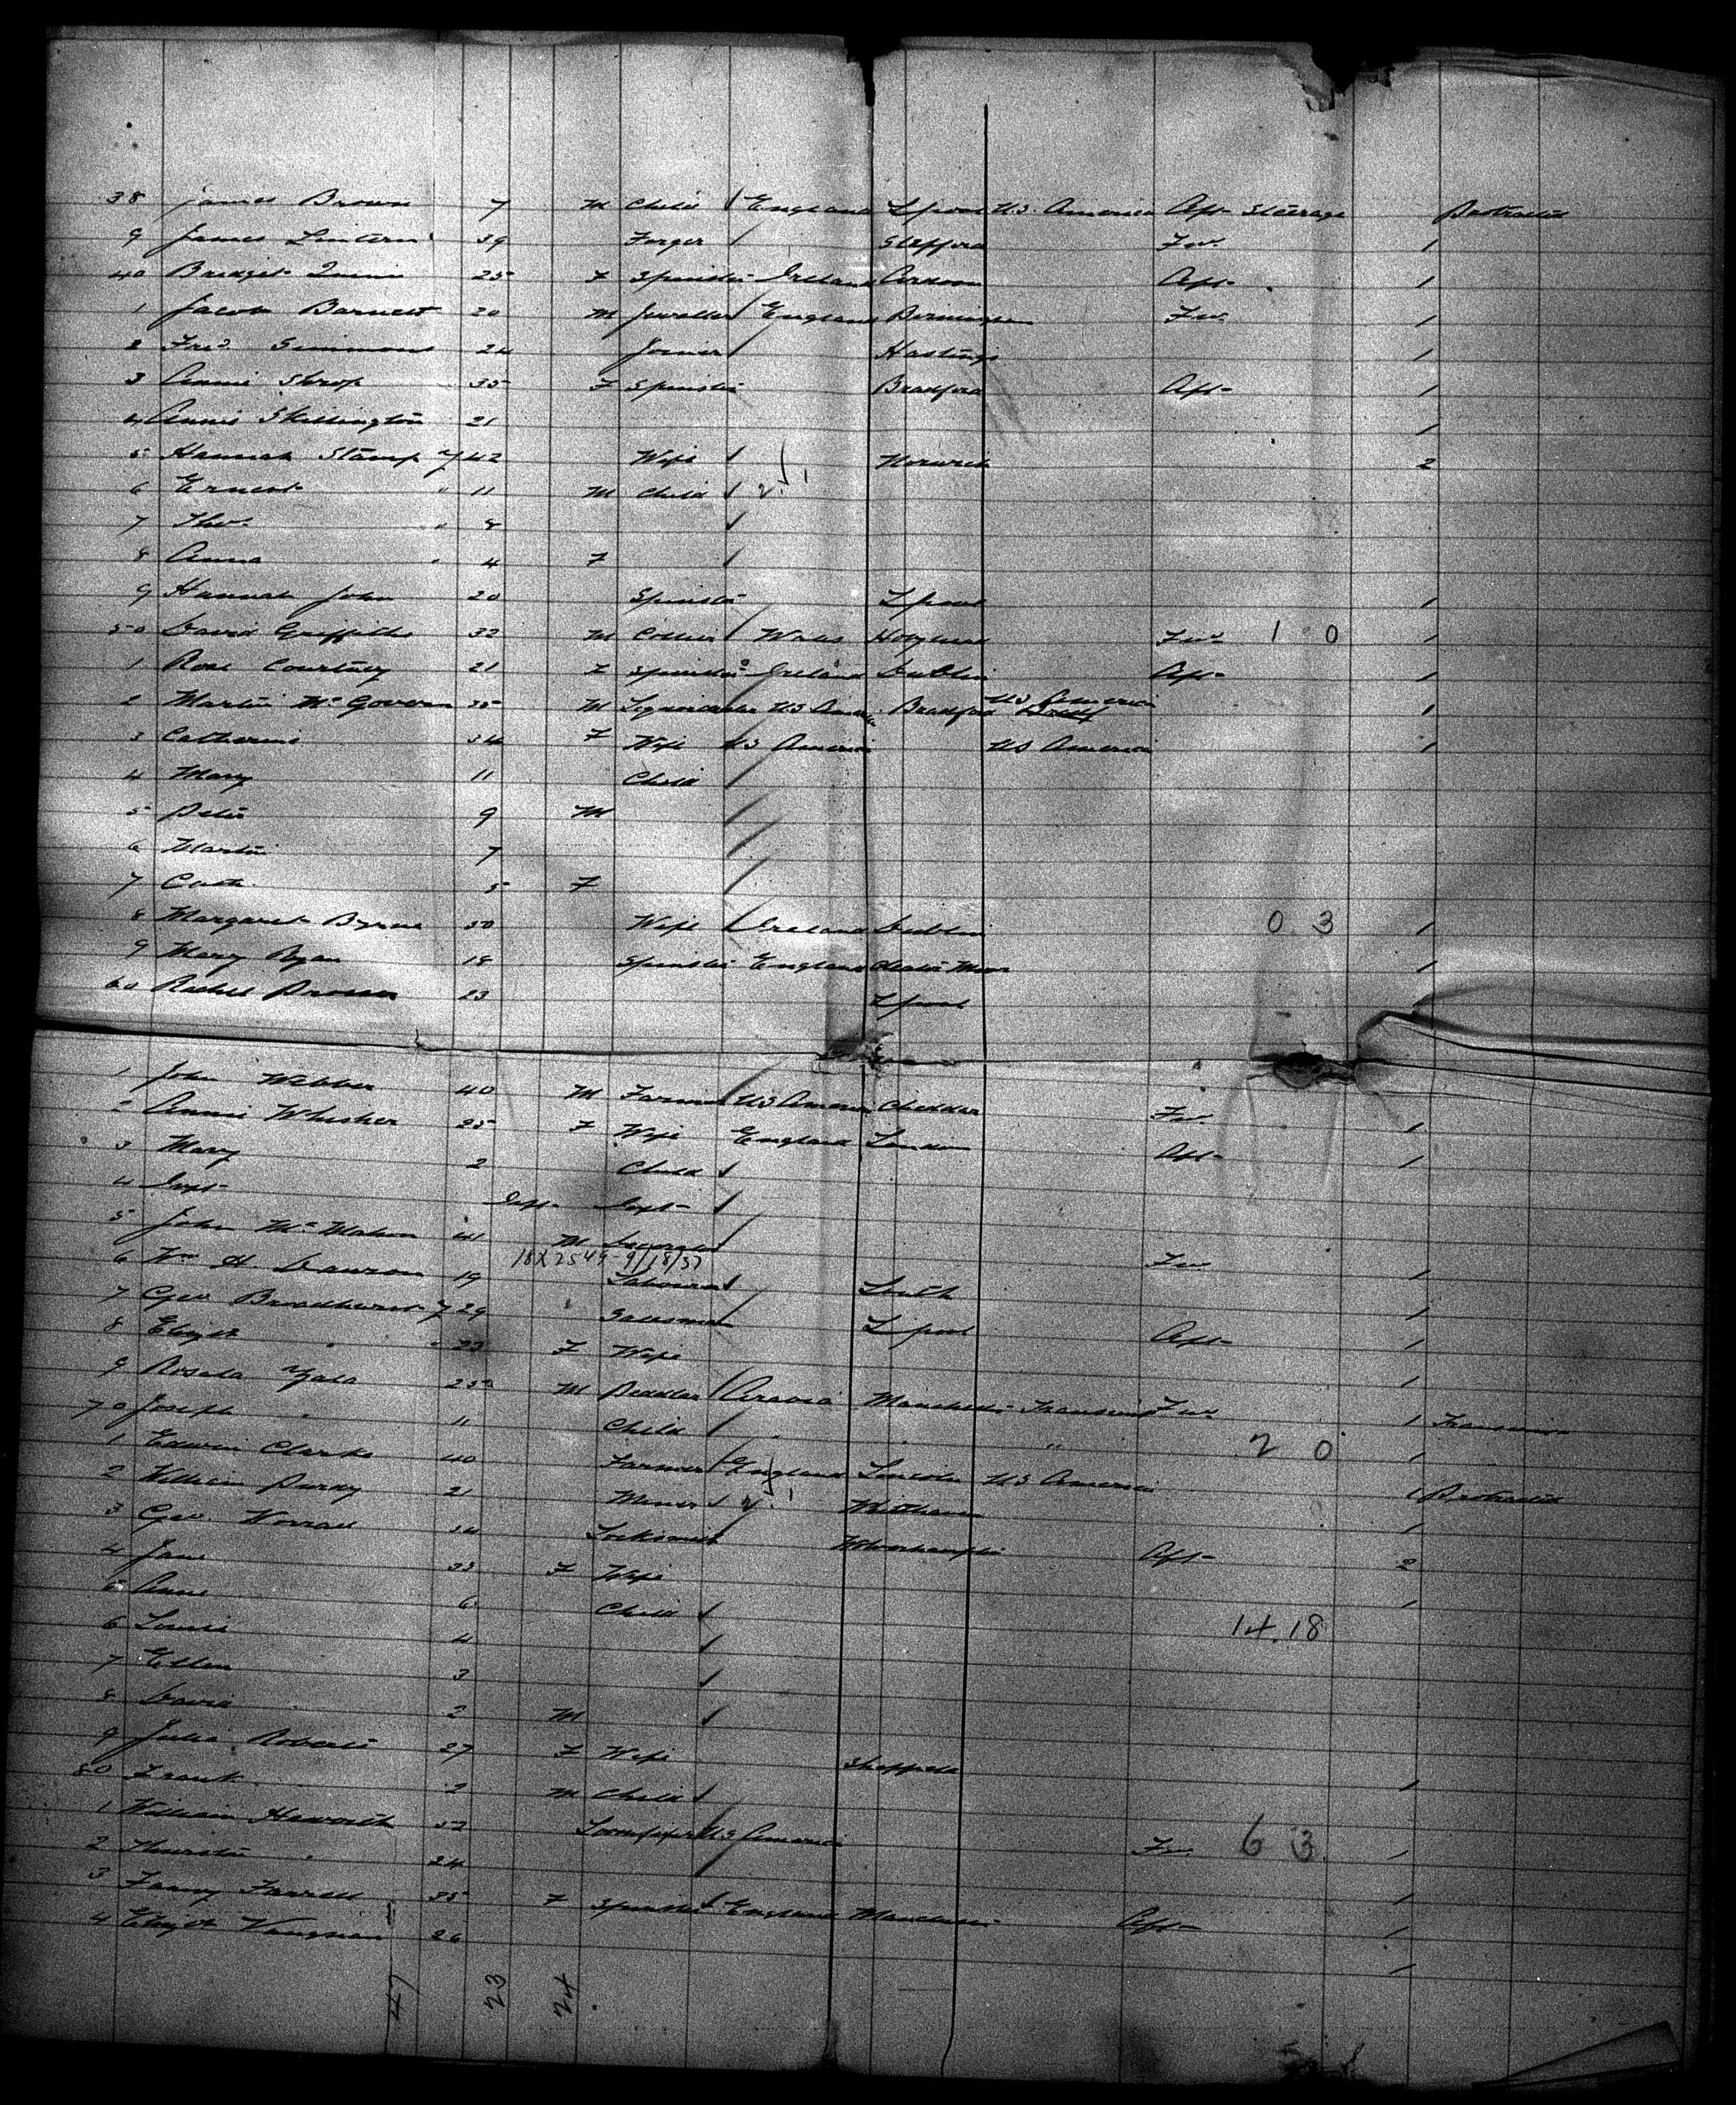 38 James Brown 7 M Child England Lpool U.S. America Aft Steerage Protracted
9 James Lintern 39 Forger Stepford Fw. 1
40 Bridget Quinn 25 F Spinster Ireland Aft 1
1 Jacob Barnett 20 M Jeweller England Birmingham Fw. 1
2 Fred. Simmons 24 Joiner Hastings 1
3 Annie Shrop 35 F Spinster Bradford Aft 1
4 Annie Skillington 21 1
5 Hannah Stamp 42 Wife Norwich 2
6 Ernest " 11 M Child
7 Tho. " 8
8 Anna " 4 F
9 Hannah John 20 Spinster Lpool 1
50 David Griffiths 32 M Collier Wales Holywell Fw. 1 0 1
1 Rose Courtney 21 F Spinster Ireland Dublin Aft 1
2 Martin McGovern 35 M U.S. Amer. Bradford U.S. America 1
3 Catherine 34 F Wife U.S. America U.S. America 1
4 Mary 11 Child
5 Peter 9 M
6 Martin 7
7 Cath. 5 F
8 Margaret Byrne 50 Wife Ireland Dublin 0 3 1
9 Mary Ryan 18 Spinster England 1
60 Rachel Prosser 23 Lpool
1 John Webber 40 M Farmer U.S. America Cheddar Fw. 1
2 Annie Whisher 25 F Wife England London Aft 1
3 Mary 2 Child
4 Inft Inft Inft
5 John McMahon 41 M Fw 1
18X2549-9/18/37
6 Wm. H. Dawson 19 Labourer Louth 1
7 Geo Broadhurst 29 Salesman Lpool Aft 1
8 Elizth " 23 F Wife 1
9 Rosala Yala 25 M Peddler Arabia Manchester Transient Fw. 1 Transient
70 Joseph " 11 Child " " 2 0 1
1 Edwin Clarke 40 Farmer England Lincoln U.S. America 1 Protracted
2 William Purdy 21 Miner 1
3 Geo. Worrall 34 Locksmith Wolverhampton Aft 2
4 Jane 33 F Wife 1
5 Anne 6 Child
6 Louis 4 14.18
7 Ellen 3
8 David 2 M
9 Julia Roberts 27 F Wife Sheffield 1
80 Frank 2 M Child
1 William Haworth 52 U.S. America Fw. 6 3 1
2 Thurston " 24 1
3 Fanny Farrell 35 F Spinster England Manchester Aft 1
4 Elizth Vaughan 26 1
47 23 24